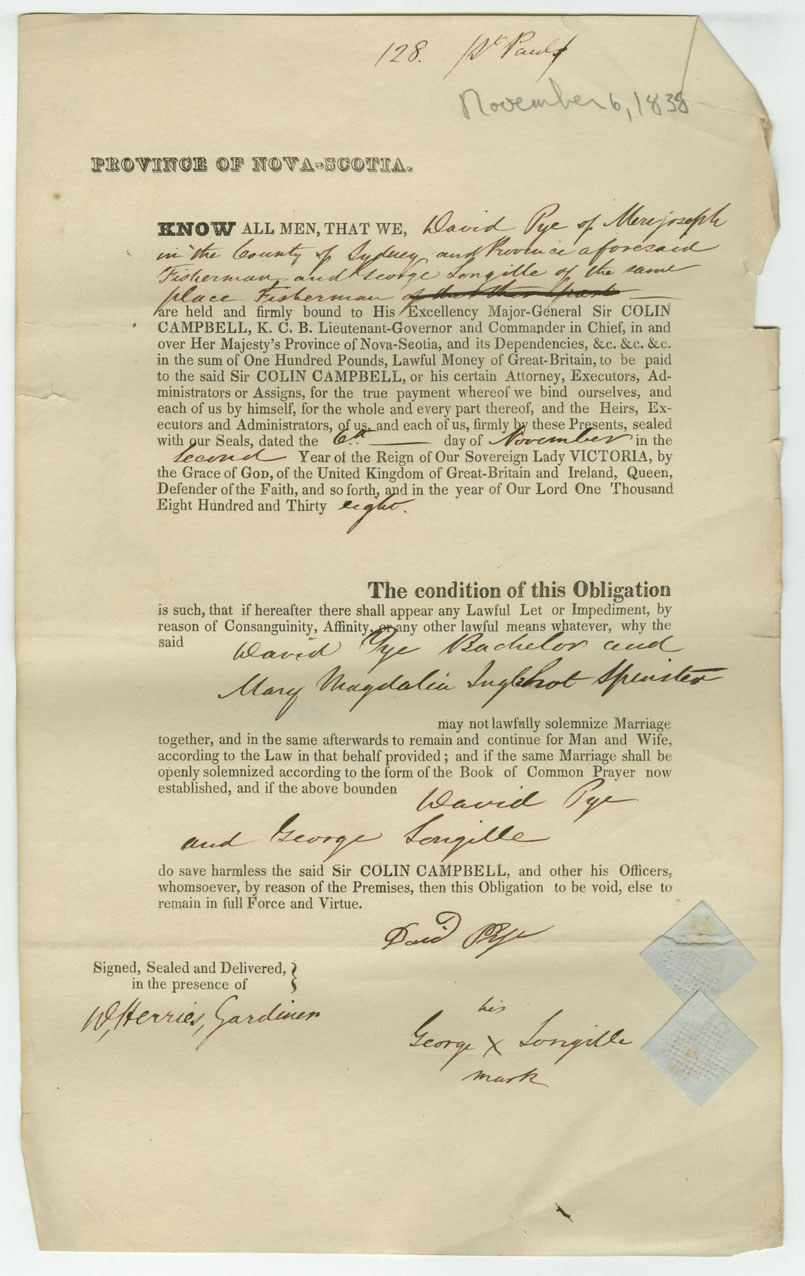 128. St Pauls
November 6, 1838
PROVINCE OF NOVA-SCOTIA.
KNOW ALL MEN, THAT WE, David Pye of Merijoseph
in the County of Sydney and Province aforesaid
Fisherman and George Longille of the same
place Fisherman
are held and firmly bound to His Excellency Major-General Sir COLIN
CAMPBELL, K. C. B. Lieutenant-Governor and Commander in Chief, in and
over Her Majesty's Province of Nova-Scotia, and its Dependencies, &c. &c. &c.
in the sum of One Hundred Pounds, Lawful Money of Great-Britain, to be paid
to the said Sir COLIN CAMPBELL, or his certain Attorney, Executors, Ad-
ministrators or Assigns, for the true payment whereof we bind ourselves, and
each of us by himself, for the whole and every part thereof, and the Heirs, Ex-
ecutors and Administrators, of us, and each of us, firmly by these Presents, sealed
with our Seals, dated the 6th day of November in the
second Year of the Reign of Our Sovereign Lady VICTORIA, by
the Grace of GOD, of the United Kingdom of Great-Britain and Ireland, Queen,
Defender of the Faith, and so forth, and in the year of Our Lord One Thousand
Eight Hundred and Thirty eight.
The condition of this Obligation
is such, that if hereafter there shall appear any Lawful Let or Impediment, by
reason of Consanguinity, Affinity, or any other lawful means whatever, why the
said David Pye Bachelor and
Mary Magdalia Inglehot Spinster
may not lawfully solemnize Marriage
together, and in the same afterwards to remain and continue for Man and Wife,
according to the Law in that behalf provided; and if the same Marriage shall be
openly solemnized according to the form of the Book of Common Prayer now
established, and if the above bounden David Pye
and George Longille
do save harmless the said Sir COLIN CAMPBELL, and other his Officers,
whomsoever, by reason of the Premises, then this Obligation to be void, else to
remain in full Force and Virtue.
David Pye
Signed, Sealed and Delivered,
in the presence of
W, Herries, Gardiner
his
George X Longille
mark